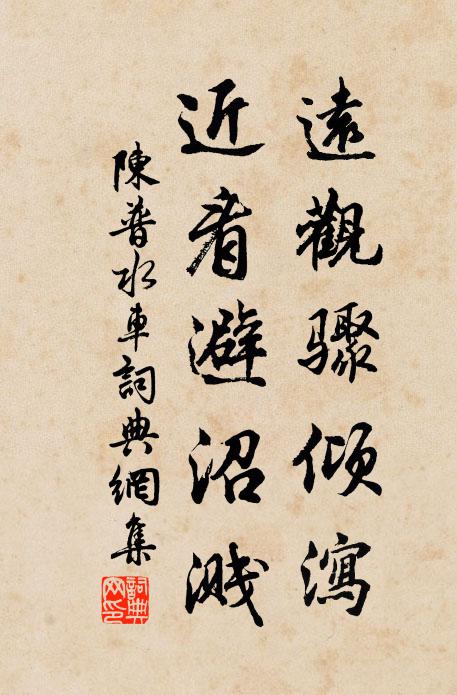 遠觀驟傾瀉
近看避沼濺
陳普水車詞典網集
詞典